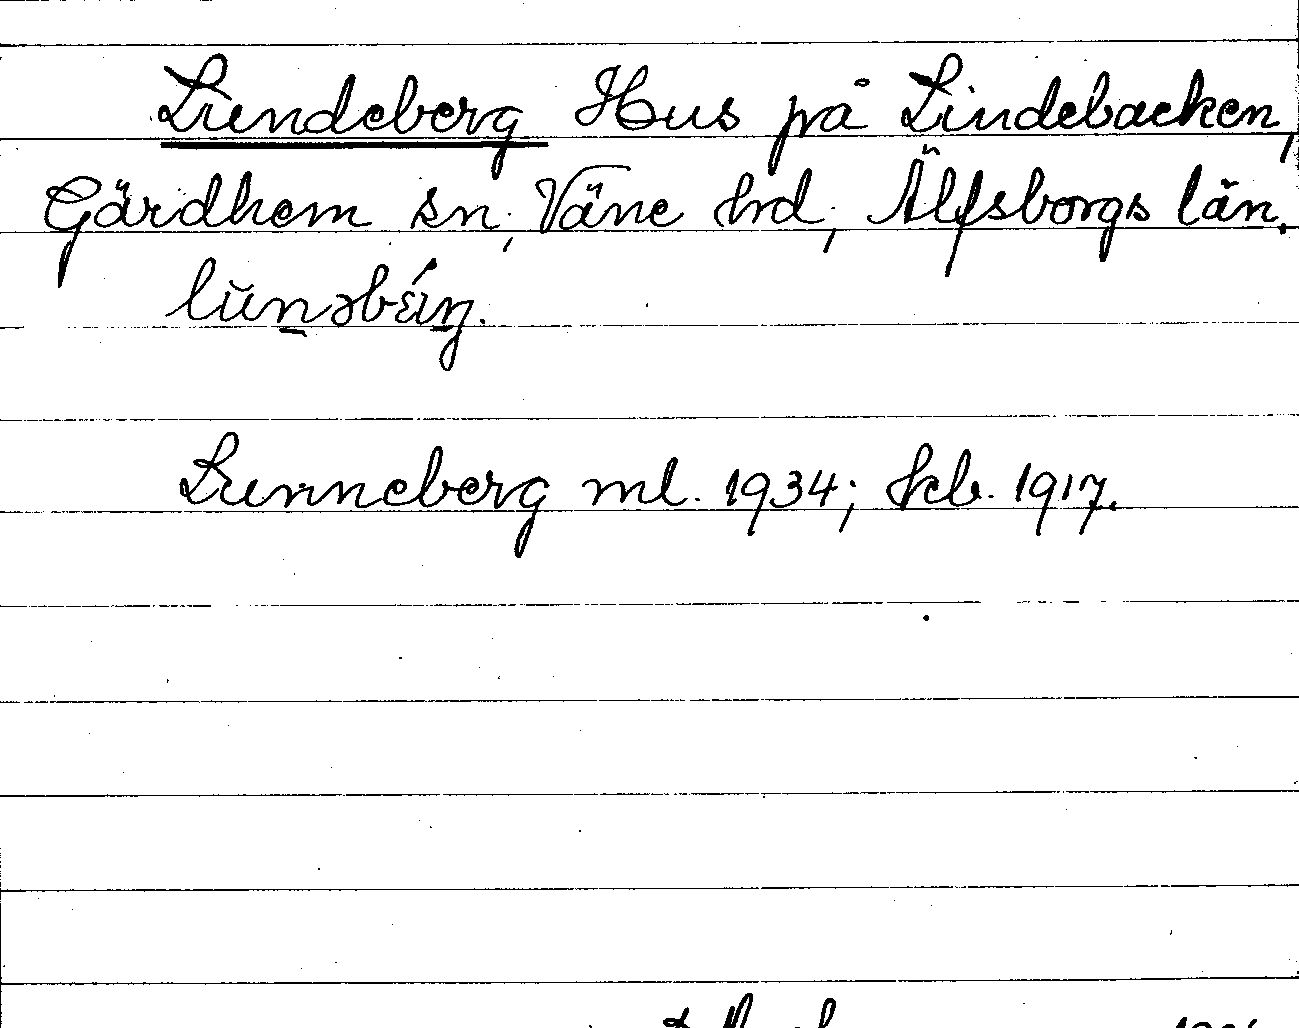 Lundeberg Hus på Lindebacken,
Gärdhem sn, Väne hd, Älfsborgs län.
Lunneberg ml. 1934; kb. 1917.